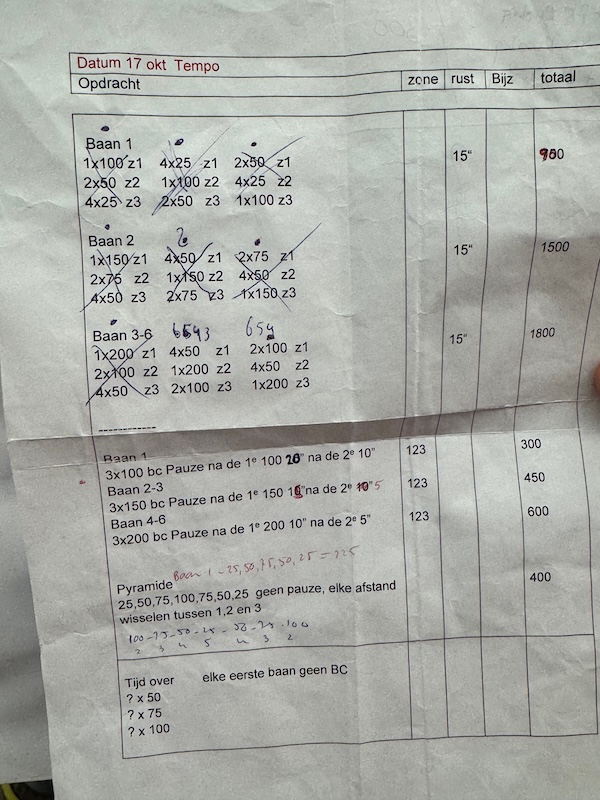 Datum 17 okt Tempo
Opdracht zone rust Bijz totaal
Baan 1
1x100 z1 4x25 z1 2x50 z1 15“ 900
2x50 z2 1x100 z2 4x25 z2
4x25 z3 2x50 z3 1x100 z3
Baan 2 2
1x150 z1 4x50 z1 2x75 z1 15“ 1500
2x75 z2 1x150 z2 4x50 z2
4x50 z3 2x75 z3 1x150 z3
Baan 3-6 6543 654
1x200 z1 4x50 z1 2x100 z1 15“ 1800
2x100 z2 1x200 z2 4x50 z2
4x50 z3 2x100 z3 1x200 z3
------------
Baan 1
3x100 bc Pauze na de 1e 100 20” na de 2e 10” 123 300
Baan 2-3
3x150 bc Pauze na de 1e 150 na de 2e 5 123 450
Baan 4-6
3x200 bc Pauze na de 1e 200 10” na de 2e 5” 123 600
Baan 1 - 25,50,75,50,25 = 225
Pyramide 400
25,50,75,100,75,50,25 geen pauze, elke afstand
wisselen tussen 1,2 en 3
100-75-50-25-50-75-100
2 3 4 5 4 3 2
Tijd over elke eerste baan geen BC
? x 50
? x 75
? x 100